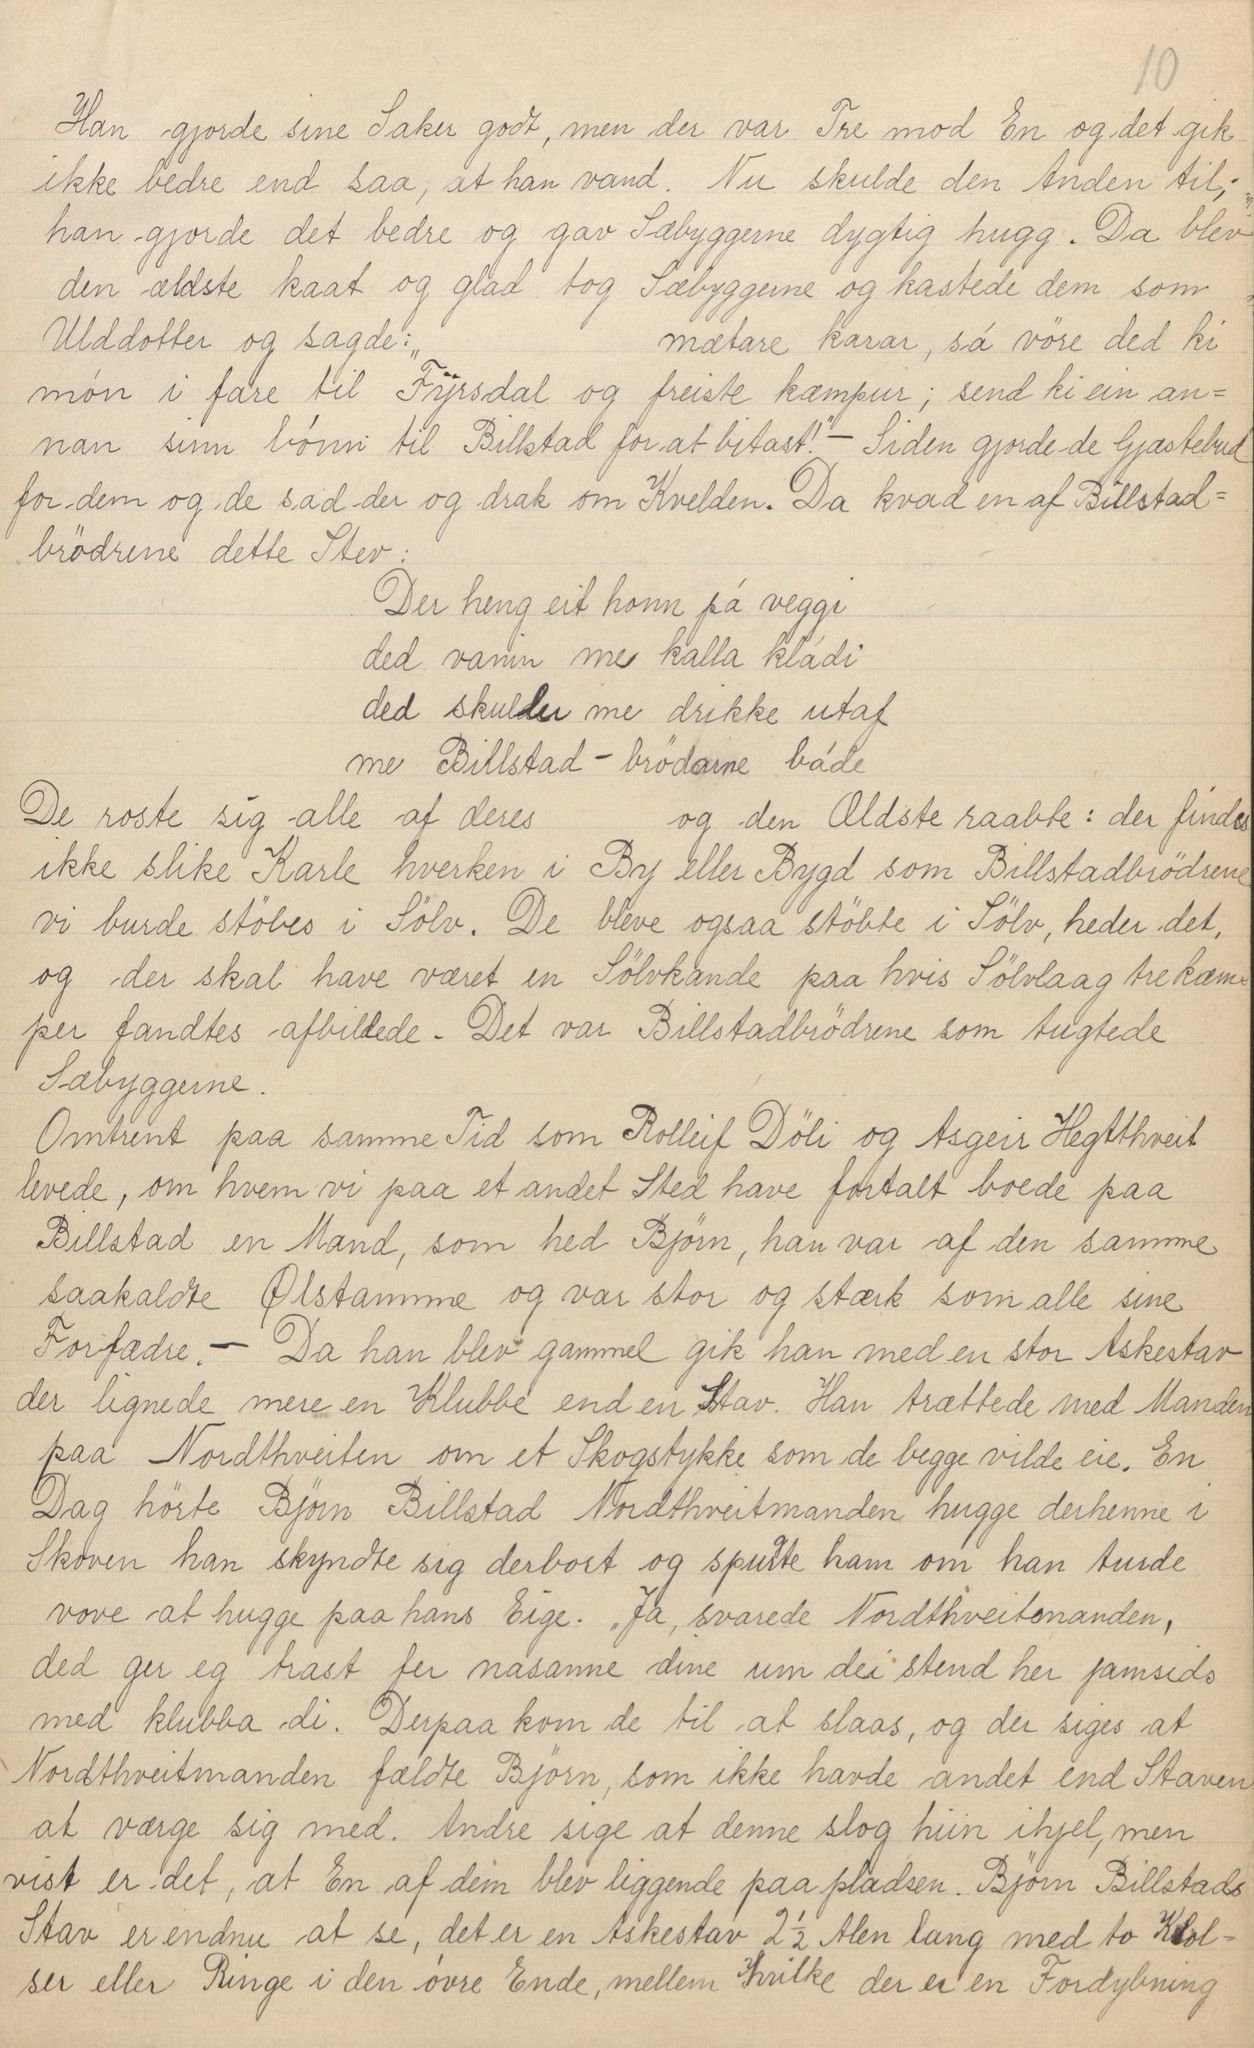 10
Han gjorde sine Saker godt, men der var Tre mod En og det gik
ikke bedre end saa, at han vand. Nu skulde den Anden til,
han gjorde det bedre og gav Sæbyggerne dygtig hugg. Da blev
den ældste kaat og glad tog Sæbyggerne og kastede dem som
Ulddotter og sagde: „ mætare karar, sá vöre ded ki
món i fare til Fÿrsdal og freiste kæmpur; send ki ein an=
nan sinn bónni til Billstad for at bitast!" — Siden gjorde de Gjæstebud
for dem og de sad der og drak om Kvelden. Da kvad en af Billstad=
brödrene dette Stev:
Der heng eit honn pá veggi
ded vanin me kalla kládi
ded skulder me drikke utaf
me Billstad - brödarne báde
De roste sig alle af deres og den Ældste raabte: der findes
ikke slike Karle hverken i By eller Bygd som Billstadbrödrene
vi burde stöbes i Sölv. De bleve ogsaa stöbte i Sölv, heder det,
og der skal have været en Sölvkande paa hvis Sölvlaag tre kæm=
per fandtes afbildede. Det var Billstadbrödrene som tugtede
Sæbyggerne.
Omtrent paa samme Tid som Rolleif Döli og Asgeir Hegtthveit
levede, om hvem vi paa et andet Sted have fortalt boede paa
Billstad en Mand, som hed Björn, han var af den samme
saakaldte Ølstamme og var stor og stærk som alle sine
Forfædre. — Da han blev gammel gik han med en stor Askestav
der lignede mere en Klubbe end en Stav. Han trættede med Manden
paa Nordthveiten om et Skogstykke som de begge vilde eie. En
Dag hörte Björn Billstad Nordthveitmanden hugge derhenne i
Skoven han skyndte sig derbort og spurte ham om han turde
vove at hugge paa hans Eige. „Ja, svarede Nordthveitmanden,
ded ger eg trast fer nasanne dine um dei stend her jamsids
med klubba di. Derpaa kom de til at slaas, og der siges at
Nordthveitmanden fældte Björn, som ikke havde andet end Staven
at værge sig med. Andre sige at denne slog hiin ihjel, men
vist er det, at En af dem blev liggende paa pladsen. Björn Billstads
Stav er endnu at se, det er en Askestav 2½ Alen lang med to Hol-
ser eller Ringe i den óvre Ende, mellem hvilke der er en Fordybning